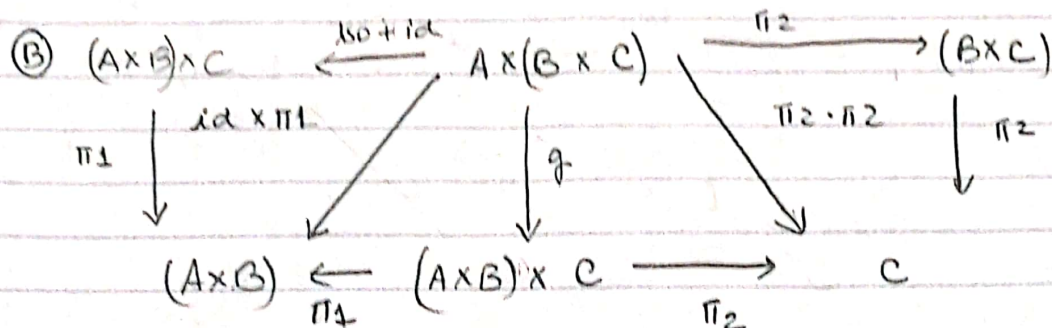 Ⓑ (A×B)×C Iso + id A×(B × C) π2 (B×C)
π1 id × π1 g π2 · π2 π2
(A×B) ← (A×B) × C → C
π1 π2